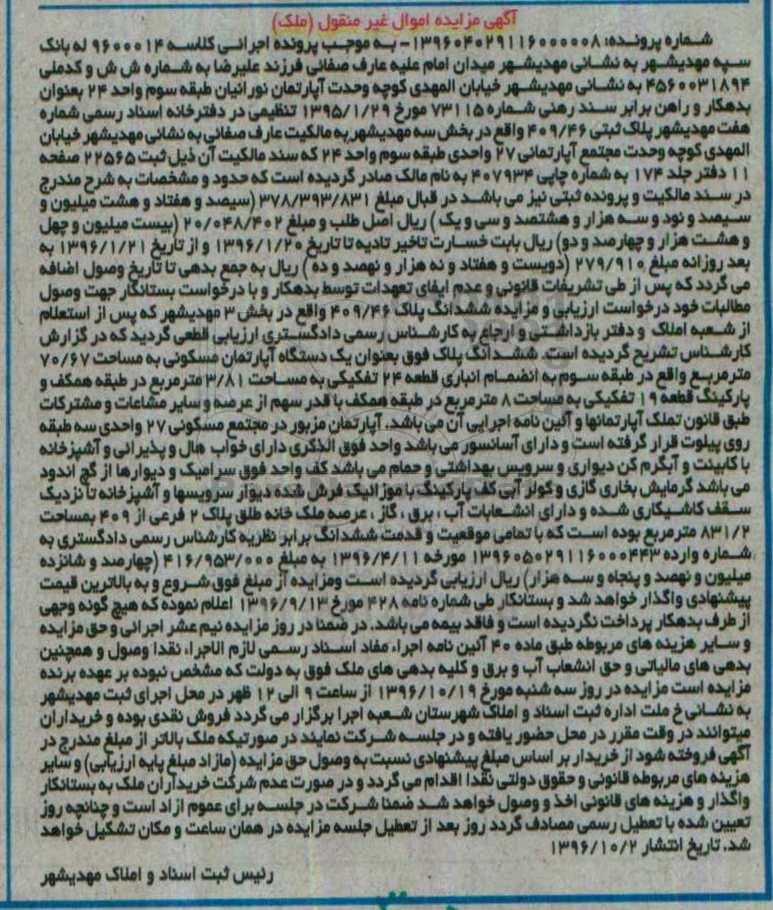 آگهی مزایده اموال غیر منقول (ملک)
شماره پرونده: ۱۳۹۶۰۴۰۲۹۱۱۶۰۰۰۰۰۸- به موجب پرونده اجرائی کلاسه ۹۶۰۰۰۱۴ له بانک
سپه مهدیشهر به نشانی مهدیشهر میدان امام علیه عارف صفائی فرزند علیرضا به شماره ش ش و کدملی
۴۵۶۰۰۳۱۸۹۴ به نشانی مهدیشهر خیابان المهدی کوچه وحدت آپارتمان نورانیان طبقه سوم واحد ۲۴ بعنوان
بدهکار و راهن برابر سند رهنی شماره ۷۳۱۱۵ مورخ ۱۳۹۵/۱/۲۹ تنظیمی در دفترخانه اسناد رسمی شماره
هفت مهدیشهر پلاک ثبتی ۴۰۹/۴۶ واقع در بخش سه مهدیشهر به مالکیت عارف صفائی به نشانی مهدیشهر خیابان
المهدی کوچه وحدت مجتمع آپارتمانی ۲۷ واحدی طبقه سوم واحد ۲۴ که سند مالکیت آن ذیل ثبت ۲۲۵۶۵ صفحه
۱۱ دفتر جلد ۱۷۴ به شماره چاپی ۴۰۷۹۳۴ به نام مالک صادر گردیده است که حدود و مشخصات به شرح مندرج
در سند مالکیت و پرونده ثبتی نیز می باشد در قبال مبلغ ۳۷۸/۳۹۳/۸۳۱ (سیصد و هفتاد و هشت میلیون و
سیصد و نود و سه هزار و هشتصد و سی و یک ) ریال اصل طلب و مبلغ ۲۰/۰۴۸/۴۰۲ (بیست میلیون و چهل
و هشت هزار و چهارصد و دو) ریال بابت خسارت تاخیر تادیه تا تاریخ ۱۳۹۶/۱/۲۰ و از تاریخ ۱۳۹۶/۱/۲۱ به
بعد روزانه مبلغ ۲۷۹/۹۱۰ (دویست و هفتاد و نه هزار و نهصد و ده ) ریال به جمع بدهی تا تاریخ وصول اضافه
می گردد که پس از طی تشریفات قانونی و عدم ایفای تعهدات توسط بدهکار و با درخواست بستانکار جهت وصول
مطالبات خود درخواست ارزیابی و مزایده ششدانگ پلاک ۴۰۹/۴۶ واقع در بخش ۳ مهدیشهر که پس از استعلام
از شعبه املاک و دفتر بازداشتی و ارجاع به کارشناس رسمی دادگستری ارزیابی قطعی گردید که در گزارش
کارشناس تشریح گردیده است. ششدانگ پلاک فوق بعنوان یک دستگاه آپارتمان مسکونی به مساحت ۷۰/۶۷
مترمربع واقع در طبقه سوم به انضمام انباری قطعه ۲۴ تفکیکی به مساحت ۳/۸۱ مترمربع در طبقه همکف و
پارکینگ قطعه ۱۹ تفکیکی به مساحت ۸ مترمربع در طبقه همکف با قدر سهم از عرصه و سایر مشاعات و مشترکات
طبق قانون تملک آپارتمانها و آئین نامه اجرایی آن می باشد. آپارتمان مزبور در مجتمع مسکونی ۲۷ واحدی سه طبقه
روی پیلوت قرار گرفته است و دارای آسانسور می باشد واحد فوق الذکری دارای خواب هال و پذیرائی و آشپزخانه
با کابینت و آبگرم کن دیواری و سرویس بهداشتی و حمام می باشد کف واحد فوق سرامیک و دیوارها از گچ اندود
می باشد گرمایش بخاری گازی و کولر آبی کف پارکینگ با موزائیک فرش شده دیوار سرویسها و آشپزخانه تا نزدیک
سقف کاشیکاری شده و دارای انشعابات آب ، برق ، گاز ، عرصه ملک خانه طلق پلاک ۲ فرعی از ۴۰۹ بمساحت
۸۳۱/۲ مترمربع بوده است که با تمامی موقعیت و قدمت ششدانگ برابر نظریه کارشناس رسمی دادگستری به
شماره وارده ۱۳۹۶۰۵۰۲۹۱۱۶۰۰۰۴۴۳ مورخه ۱۳۹۶/۴/۱۱ به مبلغ ۴۱۶/۹۵۳/۰۰۰ (چهارصد و شانزده
میلیون و نهصد و پنجاه و سه هزار) ریال ارزیابی گردیده است ومزایده از مبلغ فوق شروع و به بالاترین قیمت
پیشنهادی واگذار خواهد شد و بستانکار طی شماره نامه ۴۲۸ مورخ ۱۳۹۶/۹/۱۳ اعلام نموده که هیچ گونه وجهی
از طرف بدهکار پرداخت نگردیده است و فاقد بیمه می باشد. در ضمنا در روز مزایده نیم عشر اجرائی و حق مزایده
و سایر هزینه های مربوطه طبق ماده ۴۰ آئین نامه اجراء مفاد اسناد رسمی لازم الاجراء نقدا وصول و همچنین
بدهی های مالیاتی و حق انشعاب آب و برق و کلیه بدهی های ملک فوق به دولت که مشخص نبوده بر عهده برنده
مزایده است مزایده در روز سه شنبه مورخ ۱۳۹۶/۱۰/۱۹ از ساعت ۹ الی ۱۲ ظهر در محل اجرای ثبت مهدیشهر
به نشانی خ ملت اداره ثبت اسناد و املاک شهرستان شعبه اجرا برگزار می گردد فروش نقدی بوده و خریداران
میتوانند در وقت مقرر در محل حضور یافته و در جلسه شرکت نمایند در صورتیکه ملک بالاتر از مبلغ مندرج در
آگهی فروخته شود از خریدار بر اساس مبلغ پیشنهادی نسبت به وصول حق مزایده (مازاد مبلغ پایه ارزیابی) و سایر
هزینه های مربوطه قانونی و حقوق دولتی نقدا اقدام می گردد و در صورت عدم شرکت خریداران ملک به بستانکار
واگذار و هزینه های قانونی اخذ و وصول خواهد شد ضمنا شرکت در جلسه برای عموم ازاد است و چنانچه روز
تعیین شده با تعطیل رسمی مصادف گردد روز بعد از تعطیل جلسه مزایده در همان ساعت و مکان تشکیل خواهد
شد. تاریخ انتشار ۱۳۹۶/۱۰/۲
رئیس ثبت اسناد و املاک مهدیشهر